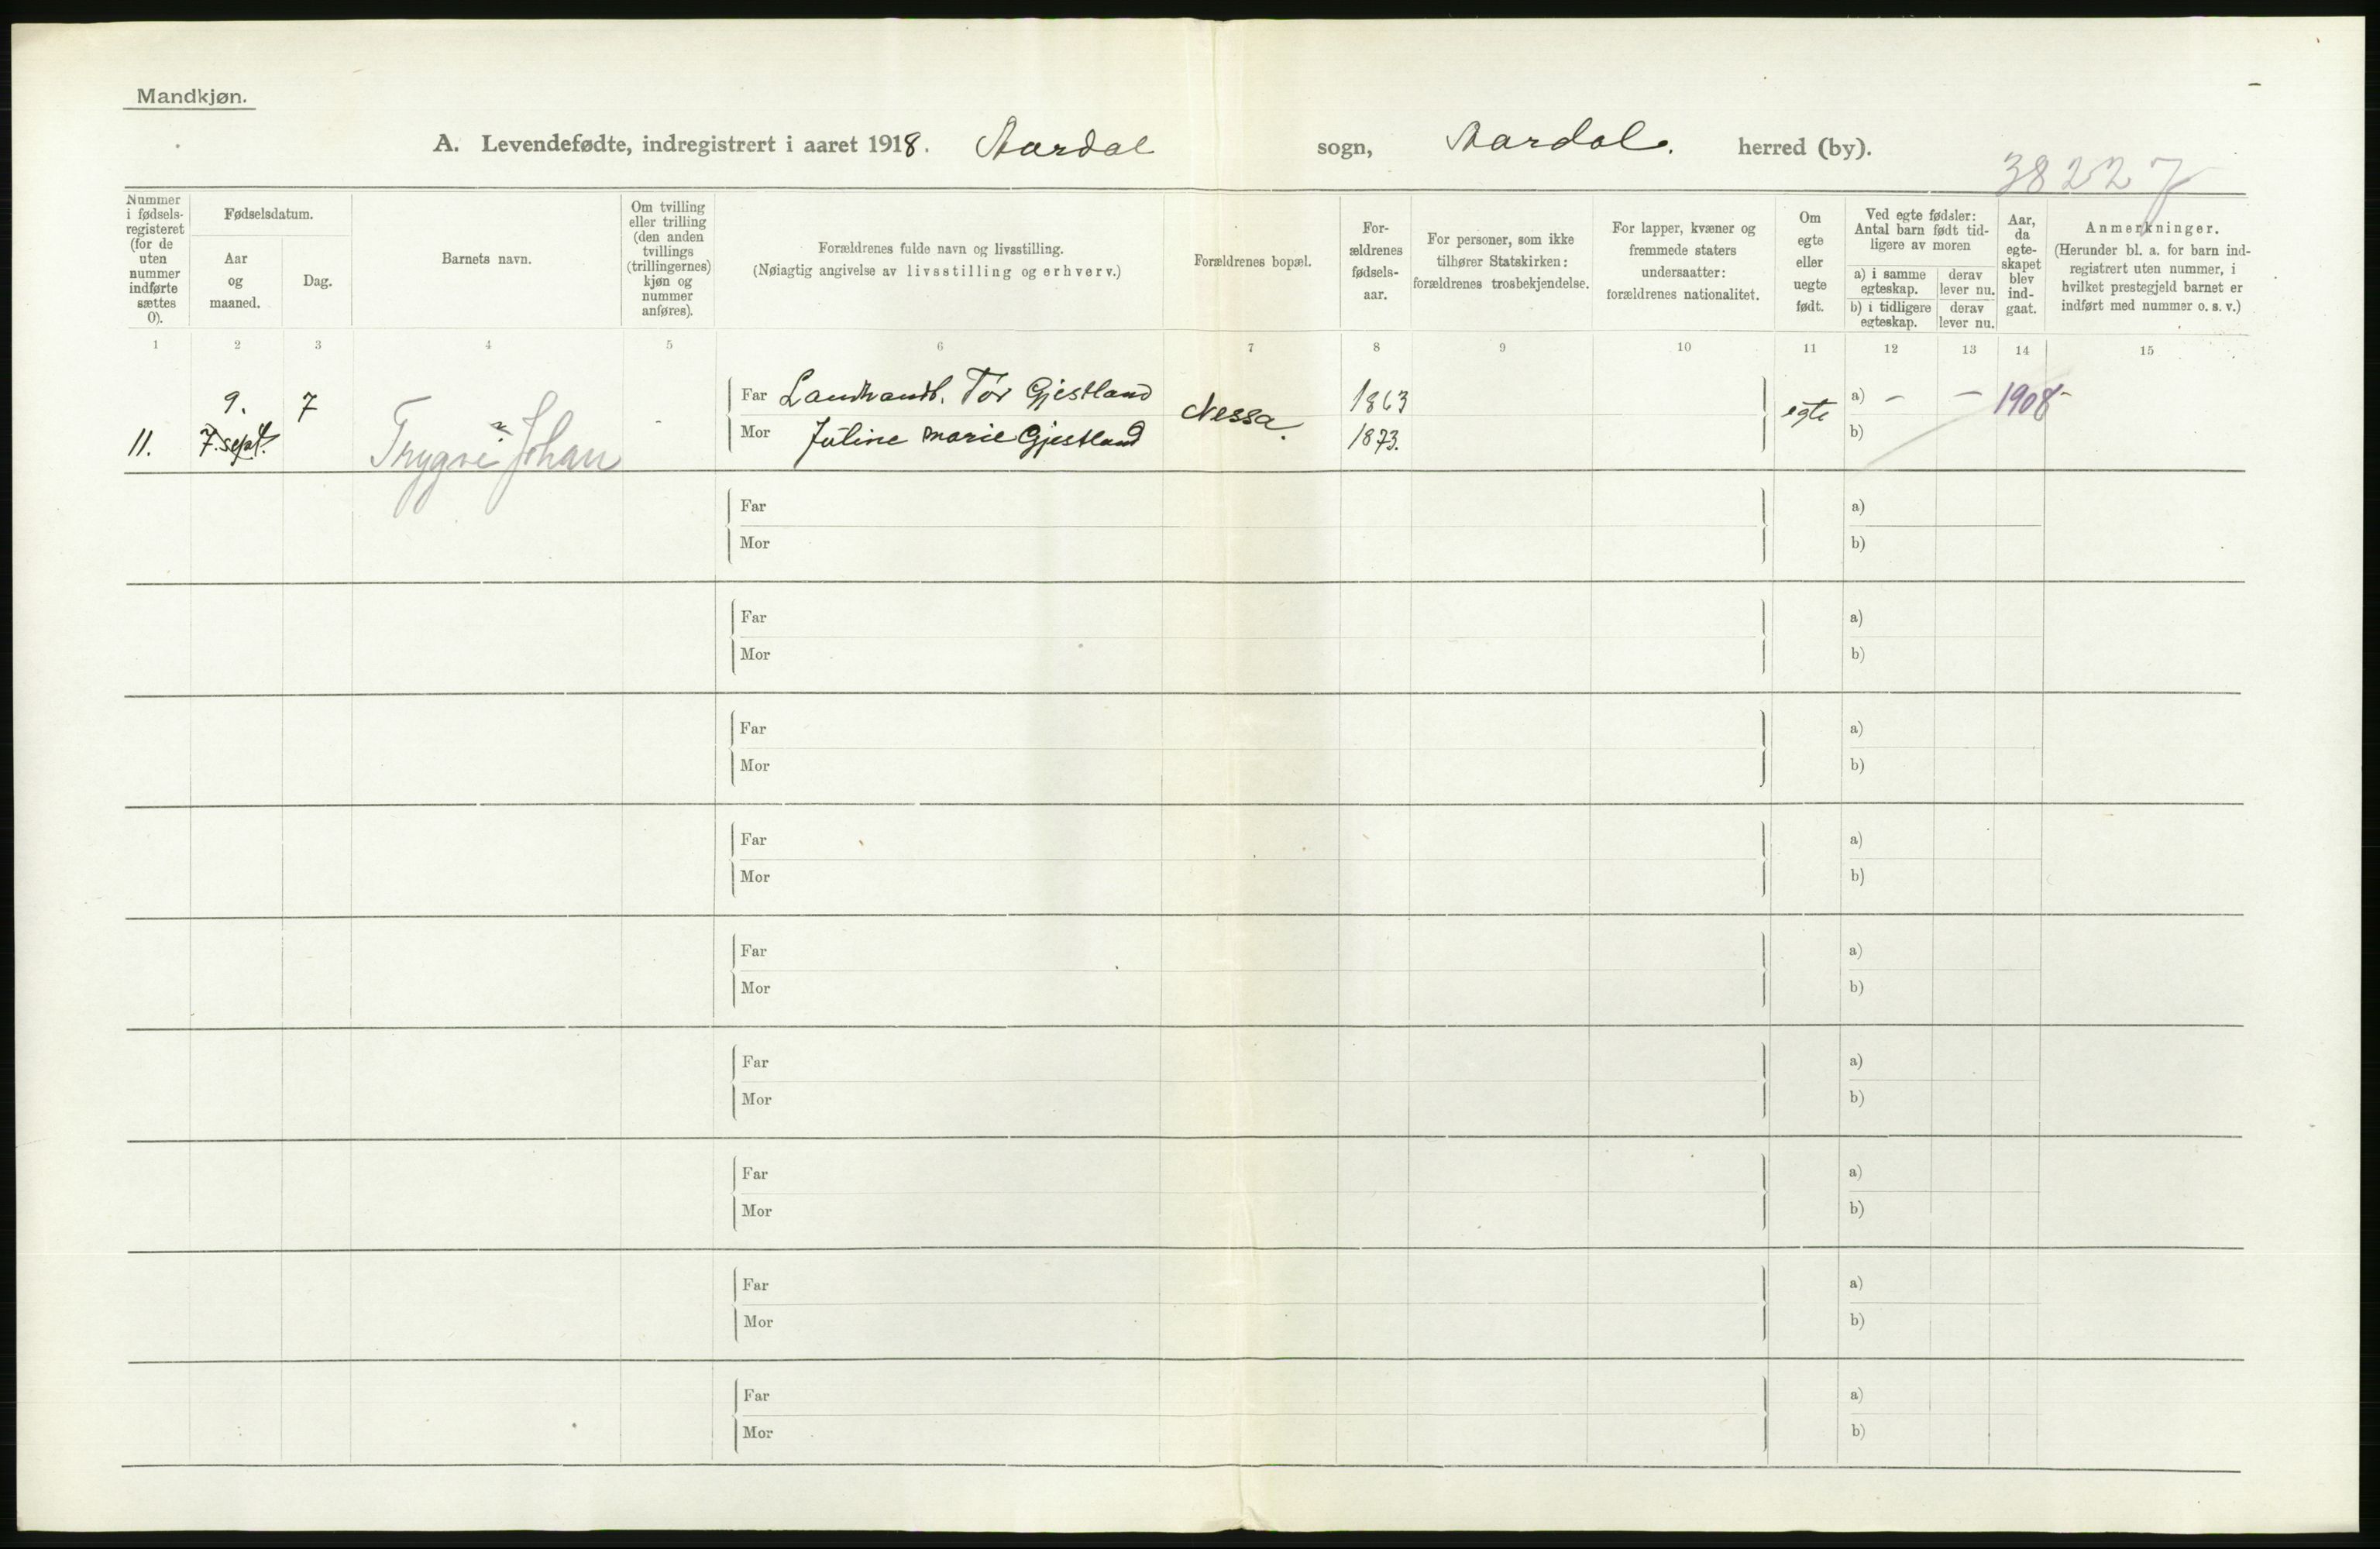 Mandkjøn.
A. Levendefødte, indregistrert i aaret 1918. Aardal sogn, Aardal. herred (by).
38227
Nummer i fødsels-registeret (for de uten nummer indførte sættes 0).
Fødselsdatum.
Aar og maaned.
Dag.
Barnets navn.
Om tvilling eller trilling (den anden tvillings (trillingernes) kjøn og nummer anføres).
Forældrenes fulde navn og livsstilling.
(Nøiagtig angivelse av livsstilling og erhverv.)
Forældrenes bopæl.
For-ældrenes fødsels-aar.
For personer, som ikke tilhører Statskirken: forældrenes trosbekjendelse.
For lapper, kvæner og fremmede staters undersaatter: forældrenes nationalitet.
Om egte eller uegte født.
Ved egte fødsler: Antal barn født tid-ligere av moren
a) i samme egteskap.
derav lever nu.
b) i tidligere egteskap.
derav lever nu.
Aar, da egte-skapet blev ind-gaat.
Anmerkninger.
(Herunder bl. a. for barn ind-registrert uten nummer, i hvilket prestegjeld barnet er indført med nummer o. s. v.)
1 2 3 4 5 6 7 8 9 10 11 12 13 14 15
9. 7 Far Landhandl. Tor Gjestland Nessa. 1863 egte a) - - 1908-
11. 7. sept. Trygve Johan - Mor Juline Marie Gjestland 1873. b)
Far a)
Mor b)
Far a)
Mor b)
Far a)
Mor b)
Far a)
Mor b)
Far a)
Mor b)
Far a)
Mor b)
Far a)
Mor b)
Far a)
Mor b)
Far a)
Mor b)